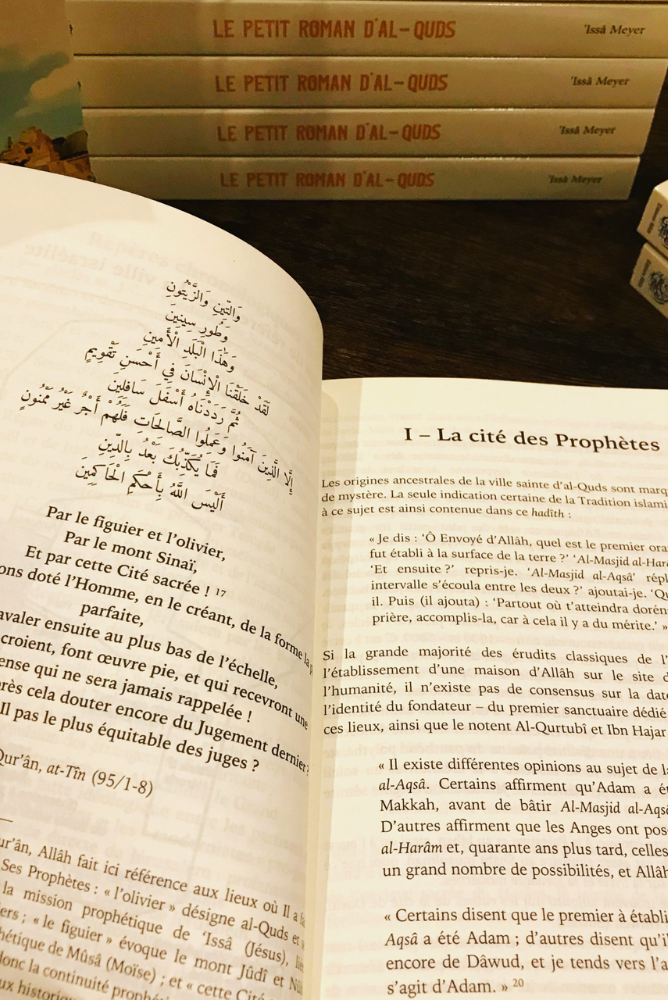 LE PETIT ROMAN D'AL-QUDS 'Issâ Meyer
LE PETIT ROMAN D'AL-QUDS 'Issâ Meyer
LE PETIT ROMAN D'AL-QUDS 'Issâ Meyer
LE PETIT ROMAN D'AL-QUDS 'Issâ Meyer
وَالتِّينِ وَالزَّيْتُونِ
وَطُورِ سِينِينَ
وَهَٰذَا الْبَلَدِ الْأَمِينِ
لَقَدْ خَلَقْنَا الْإِنْسَانَ فِي أَحْسَنِ تَقْوِيمٍ
ثُمَّ رَدَدْنَاهُ أَسْفَلَ سَافِلِينَ
إِلَّا الَّذِينَ آمَنُوا وَعَمِلُوا الصَّالِحَاتِ فَلَهُمْ أَجْرٌ غَيْرُ مَمْنُونٍ
فَمَا يُكَذِّبُكَ بَعْدُ بِالدِّينِ
أَلَيْسَ اللَّهُ بِأَحْكَمِ الْحَاكِمِينَ
Par le figuier et l'olivier,
Par le mont Sinaï,
Et par cette Cité sacrée ! 17
ons doté l'Homme, en le créant, de la forme la p
parfaite,
avaler ensuite au plus bas de l'échelle,
croient, font œuvre pie, et qui recevront une
ense qui ne sera jamais rappelée !
rès cela douter encore du Jugement dernier ?
Il pas le plus équitable des juges ?
Qur'ân, at-Tîn (95/1-8)
ur'ân, Allâh fait ici référence aux lieux où Il a
Ses Prophètes : « l'olivier » désigne al-Quds et
la mission prophétique de 'Issâ (Jésus),
ers ; « le figuier » évoque le mont Jûdî et
hétique de Mûsâ (Moïse) ; et « cette Cité
donc la continuité
ux
I – La cité des Prophètes
Les origines ancestrales de la ville sainte d'al-Quds sont marq
de mystère. La seule indication certaine de la Tradition islami
à ce sujet est ainsi contenue dans ce hadîth :
« Je dis : 'Ô Envoyé d'Allâh, quel est le premier ora
fut établi à la surface de la terre ?' 'Al-Masjid al-Har
'Et ensuite ?' repris-je. 'Al-Masjid al-Aqsâ' répl
intervalle s'écoula entre les deux ?' ajoutai-je. 'Qu
il. Puis (il ajouta) : 'Partout où t'atteindra
prière, accomplis-la, car à cela il y a du mérite.' »
Si la grande majorité des érudits classiques de l'
l'établissement d'une maison d'Allâh sur le site d
l'humanité, il n'existe pas de consensus sur la dat
l'identité du fondateur – du premier sanctuaire dédié
ces lieux, ainsi que le notent Al-Qurtubî et Ibn Hajar
« Il existe différentes opinions au sujet de l
al-Aqsâ. Certains affirment qu'Adam a é
Makkah, avant de bâtir Al-Masjid al-Aqs
D'autres affirment que les Anges ont pos
al-Harâm et, quarante ans plus tard, celles
un grand nombre de possibilités, et Allâh
« Certains disent que le premier à établi
Aqsâ a été Adam ; d'autres disent qu'i
encore de Dâwud, et je tends vers l'a
s'agit d'Adam. » 20